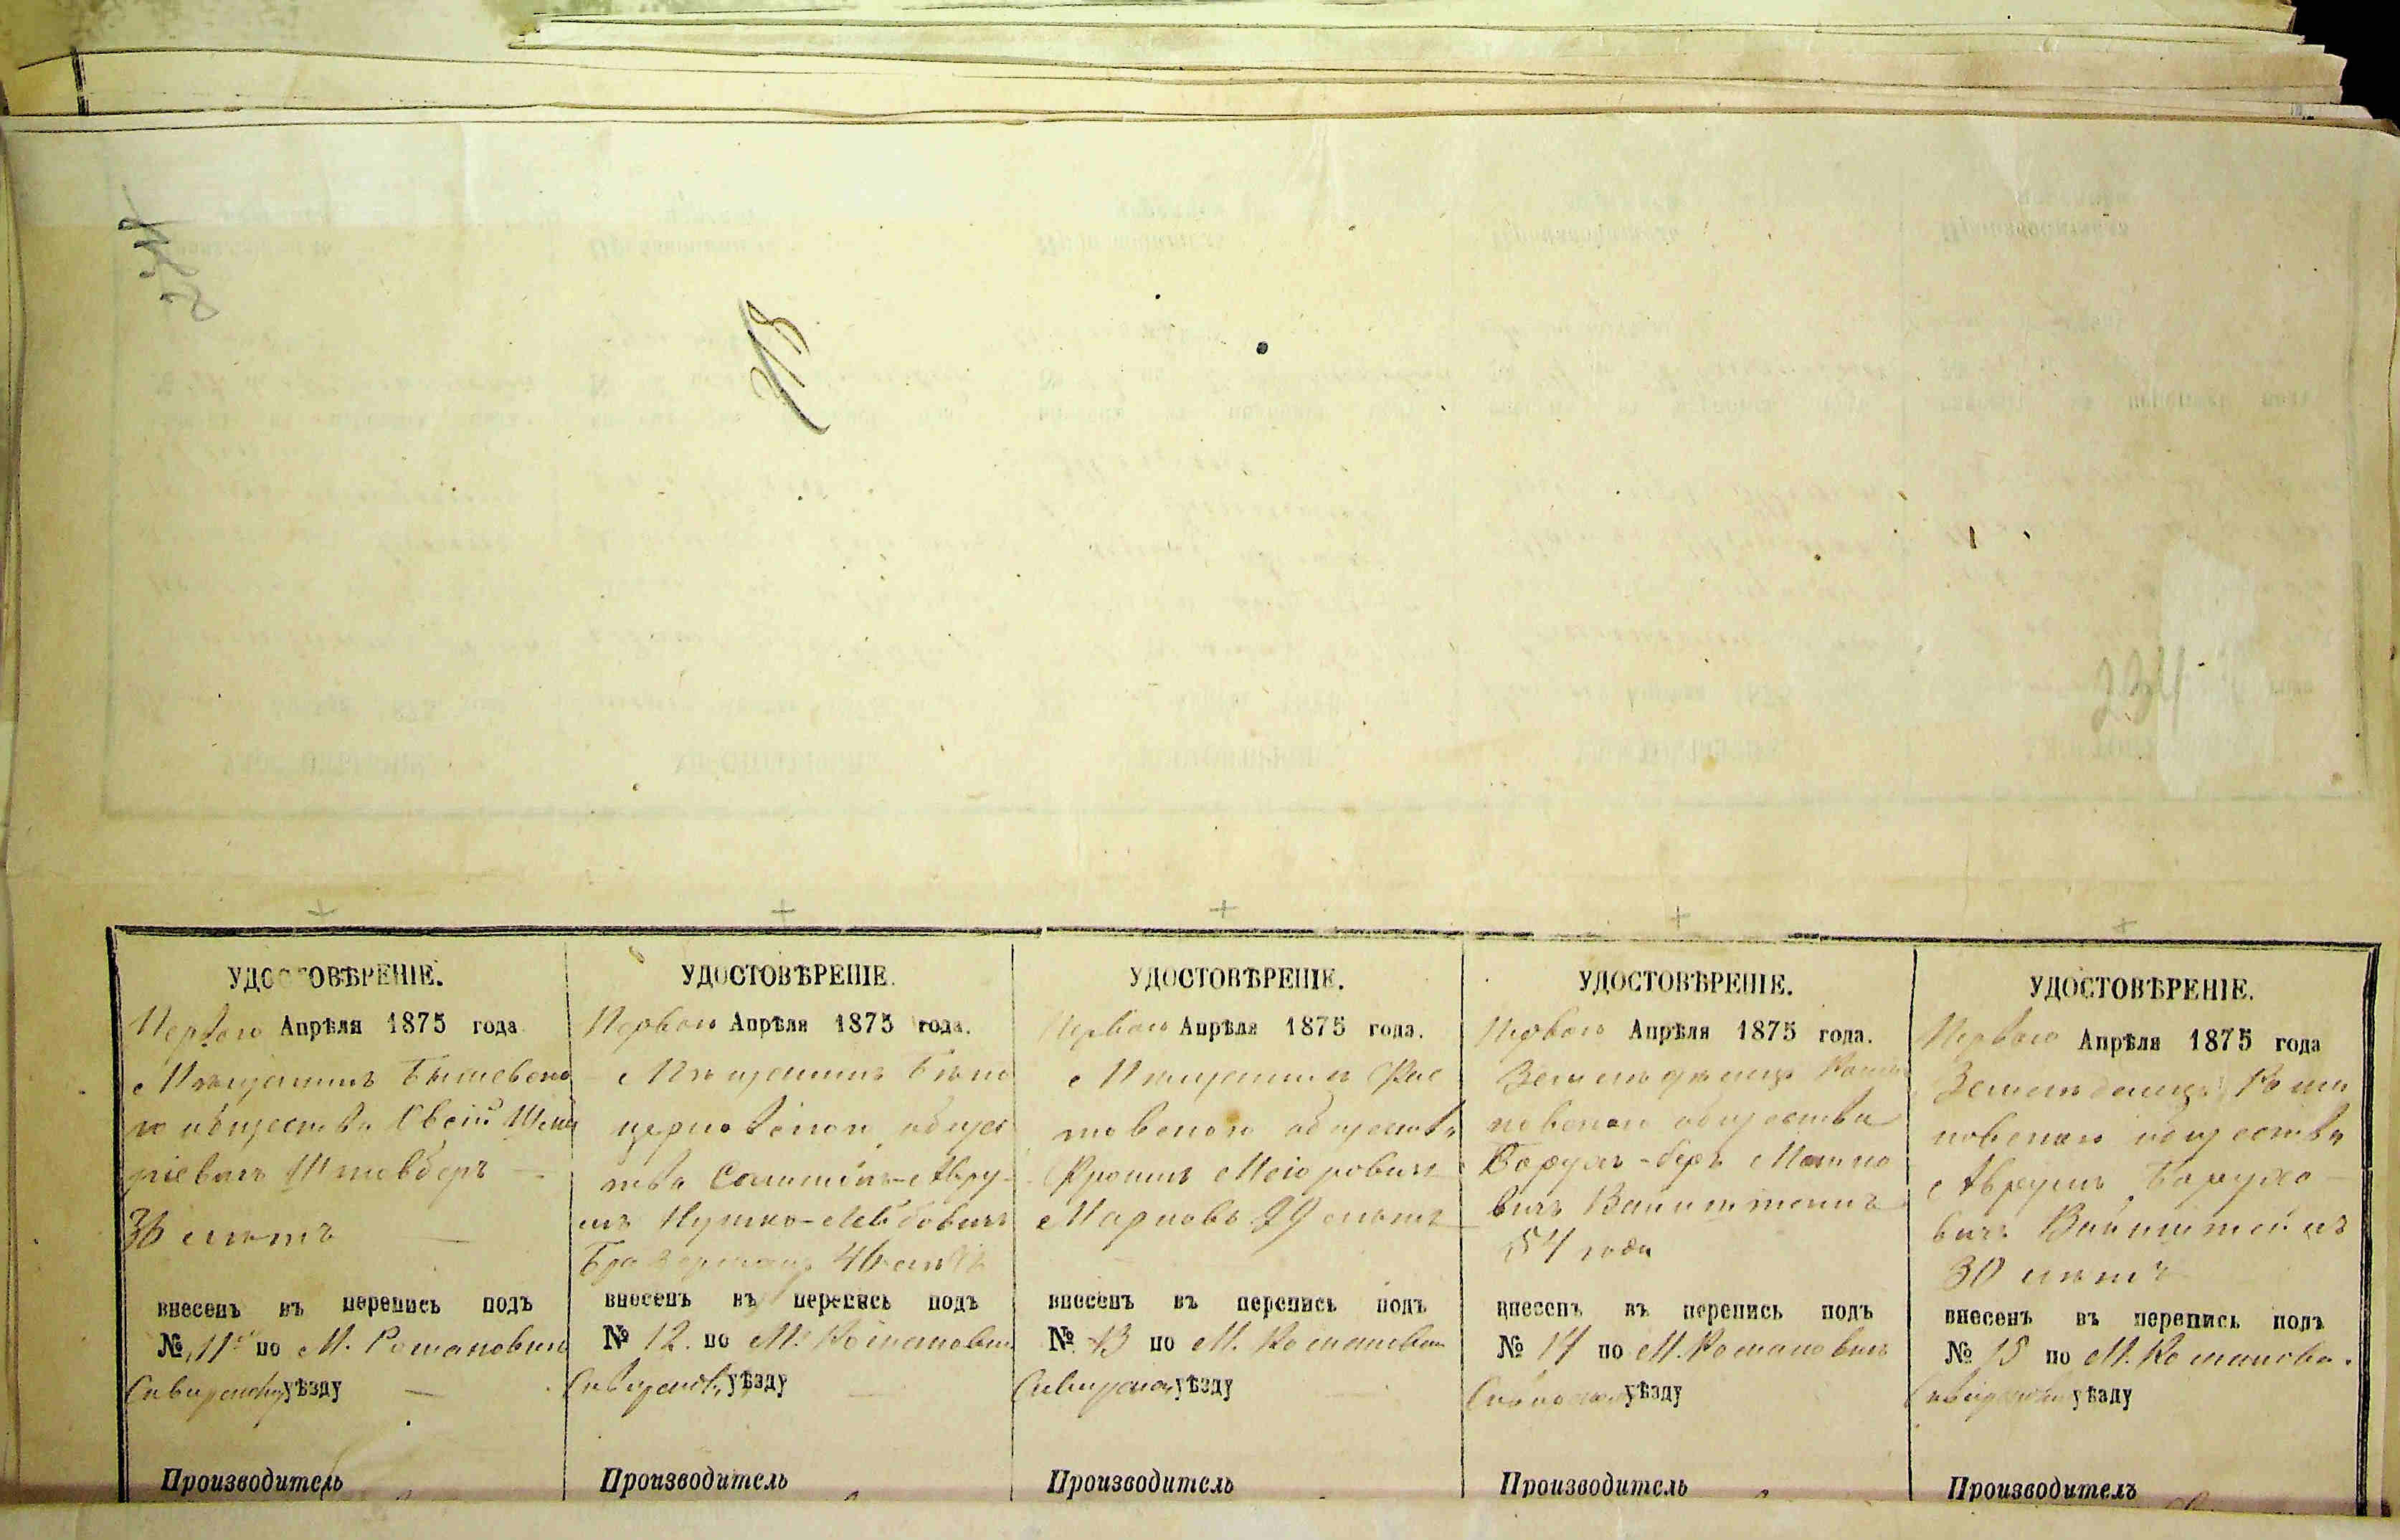 234
УДОСТОВѢРЕНІЕ.
Перваго Апрѣля 1875 года
Мѣщанинъ Бышевска
го общества Овсій
Штевберъ
36 лѣтъ
внесенъ въ перепись подъ
№ 11 по М. Романовкѣ
Сквирскому уѣзду
Производитель
УДОСТОВѢРЕНІЕ.
Перваго Апрѣля 1875 года.
Мѣщанинъ Бѣло
церковскаго общес
тва Авру
мъ Лейбовичъ
46 лѣтъ
внесенъ въ перепись подъ
№ 12. по М. Романовкѣ
Сквирскому уѣзду
Производитель
УДОСТОВѢРЕНІЕ.
Перваго Апрѣля 1875 года.
Мѣщанинъ Фас
товскаго общества
Фроимъ Меіоровичъ
Марковъ 29 лѣтъ
внесенъ въ перепись подъ
№ 13 по М. Романовкѣ
Сквирскому уѣзду
Производитель
УДОСТОВѢРЕНІЕ.
Перваго Апрѣля 1875 года.
Земледѣлецъ Рома
новскаго общества
Борухъ-беръ
вичъ Вайнштейнъ
54 года
внесенъ въ перепись подъ
№ 14 по М. Романовкѣ
Сквирскому уѣзду
Производитель
УДОСТОВѢРЕНІЕ.
Перваго Апрѣля 1875 года
Земледѣлецъ Рома
новскаго общества
Аврумъ Борухо-
вичъ Вайнштейнъ
30 лѣтъ
внесенъ въ перепись подъ
№ 15 по М. Романовкѣ
Сквирскому уѣзду
Производитель